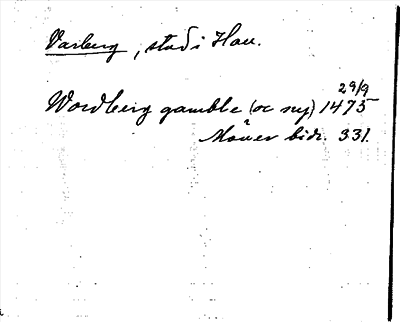 Varberg, stad i Hall.
29/9
Wordberg gamble (oc ny) 1475
Måner bidr. 331.